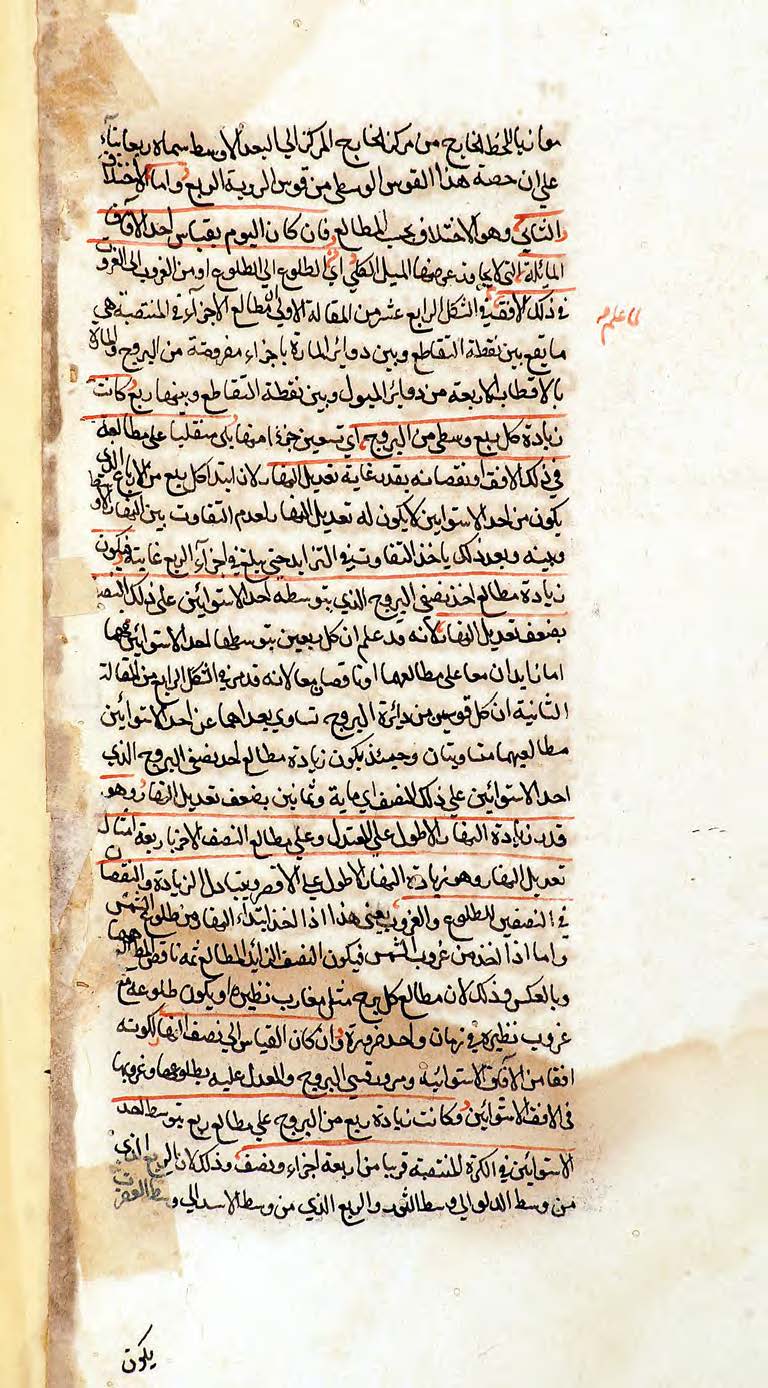 موازيا للخط الخارج من مركز الخارج المركز الي البعد الاوسط سماه ربعا بناء
علي ان حصة هذا القوس الوسطي من قوس الروية الربع واما الاختلاف
الثاني وهو الاختلاف بحسب المطالع فان كان اليوم بقياس احد الافاق
المائلة التي لا يجاوز عرضها الميل الكلي اي الطلوع الي الطلوع او من الغروب الي الغروب
في ذلك الافق في الشكل الرابع عشر من المقالة الاولي ان مطالع الاجزآء في المنتصبة هي
ما يقع بين نقطة التقاطع وبين دوائر المارة باجزاء مفروضة من البروج والمارة
بالاقطاب الاربعة من دوائر الميول وبين نقطة التقاطع وبينها ربع كانت
زيادة كل ربع وسطي من البروج اي تسعين جزءا منها علي مطالعة
في ذلك الافق او نقصانه بقدر غاية تعديل النهار لان ابتدا كل ربع من الارباع الذي
يكون من احد الاستوايين لا يكون له تعديل النهار لعدم التفاوت بين النهار
وبينه وبعد ذلك ياخذ التفاوت في التزايد حتي يبلغ في اجزآء الربع غايته فيكون
زيادة مطالع احد نصفي البروج الذي يتوسطه احد الاستوائين علي ذلك النصف
بضعف تعديل النهار لانه قد علم ان كل ربعين يتوسطهما احد الاستوائين فهما
اما زايدان معا علي مطالعهما او ناقصان معا لانه قد مر في الشكل الرابع من المقالة
الثانية ان كل قوسين من دائرة البروج تساوي بعداهما عن احد الاستوائين
مطالعيهما متساويتان وحينئذ يكون زيادة مطالع احد نصفي البروج الذي
احد الاستوائين علي ذلك النصف اي ماية وثمانين بضعف تعديل النهار وهو
قدر زيادة النهار الاطول علي المعتدل وعلي مطالع النصف الاخر باربعة امثال
تعديل النهار وهو زيادة النهار الاطول علي الاقصر ويتبادل الزيادة والنقصان
في النصفين للطلوع والغروب يعني هذا اذا اخذ ابتداء النهار من طلوع الشمس
واما اذا اخذ من غروب الشمس فيكون النصف الزايد المطالع ثمه ناقص المطالع ههنا
وبالعكس وذلك لان مطالع كل برج مثل مغارب نظيره او يكون طلوعه مع
غروب نظيره في زمان واحد ضرورة وان كان القياس الي نصف النهار لكونه
افقا من الآفاق الاستوائية ومرور قسي البروج والمعدل عليه بطلوعها وغروبها
في الافق الاستوائين وكانت زيادة ربع من البروج علي مطالع ربع يتوسط احد
الاستوائين في الكرة المنتصبة قريبا من اربعة اجزاء ونصف وذلك لان الربع الذي
من وسط الدلو الي وسط الثور والربع الذي من وسط الاسد الي وسط العقرب
يكون
لما علم